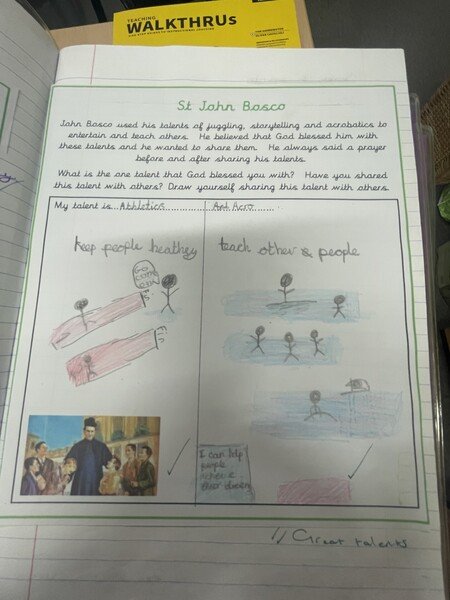 TEACHING
WALKTHRUs
St John Bosco
John Bosco used his talents of juggling, storytelling and acrobatics to
entertain and teach others. He believed that God blessed him with
these talents and he wanted to share them. He always said a prayer
before and after sharing his talents.
What is the one talent that God blessed you with? Have you shared
this talent with others? Draw yourself sharing this talent with others.
My talent is Athletics
And Acro
keep people heathey
teach other & people
GO
Fin
Fin
I can help
people
achieve
their dreams
// Great talents